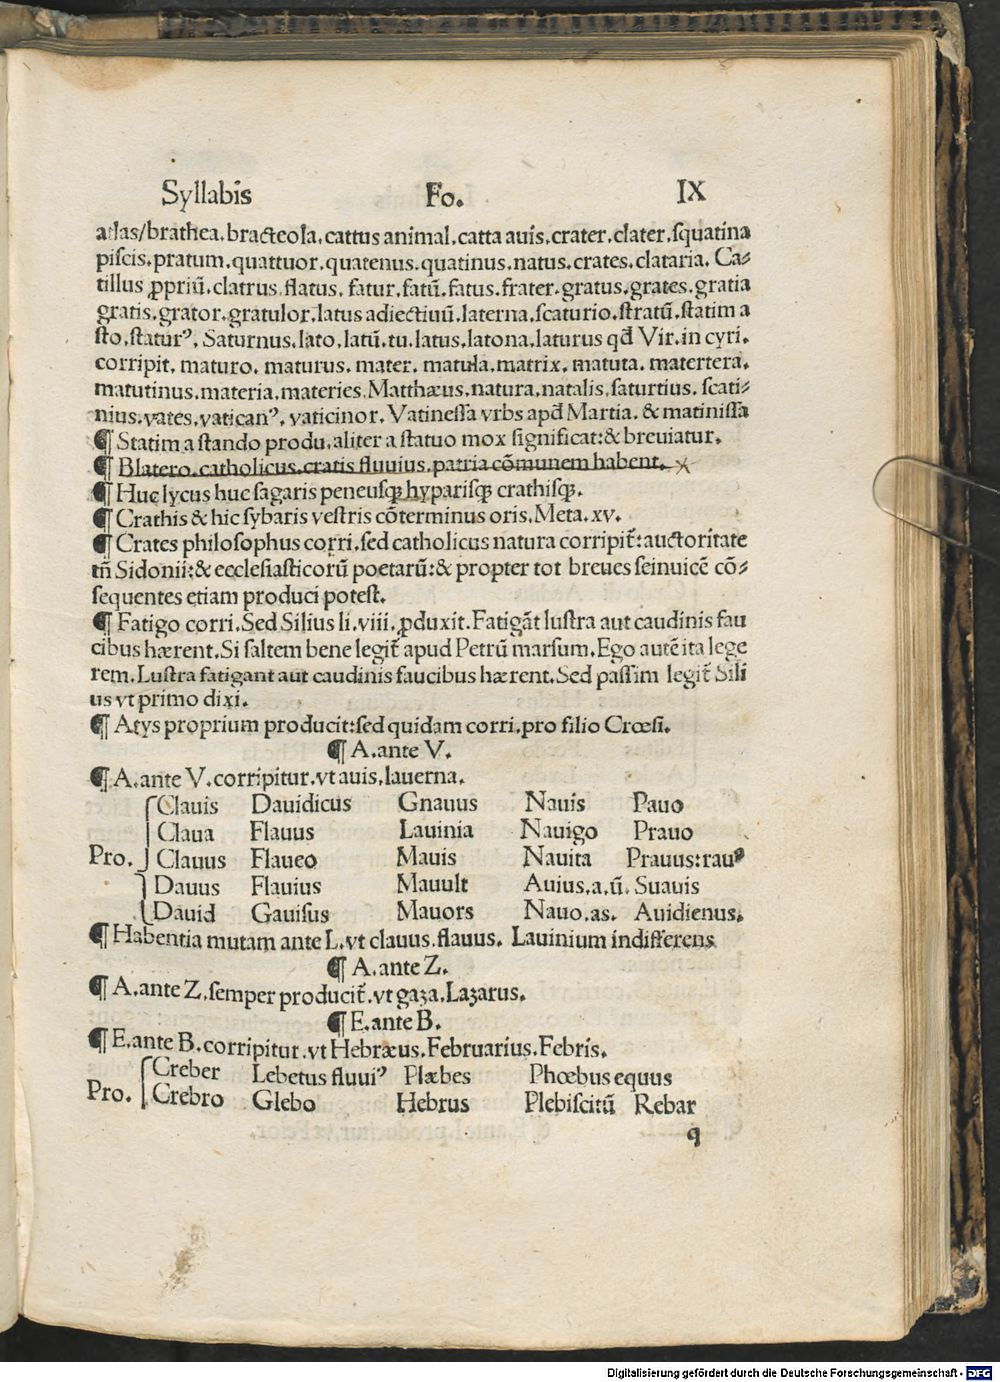 Syllabis Fo. IX
atlas/brathea.bracteola.cattus animal.catta auis.crater.clater.squatina
piscis.pratum.quattuor.quatenus.quatinus.natus.crates.clataria. Ca⸗
tillus ꝓpriũ.clatrus.flatus. fatur.fatũ.fatus.frater.gratus.grates.gratia
gratis.grator.gratulor.latus adiectiuũ.laterna.scaturio.stratũ.statim a
sto.staturꝰ. Saturnus.lato.latũ.tu.latus.latona.laturus qđ Vir.in cyri.
corripit. maturo. maturus. mater. matula.matrix. matuta. matertera.
matutinus.materia.materies.Matthæus.natura.natalis.saturtius. scati⸗
nius.vates.vaticanꝰ. vaticinor. Vatinessa vrbs apđ Martia. & matinissa
¶ Statim a stando produ.aliter a statuo mox significat:& breuiatur.
¶ Blatero.catholicus.cratis fluuius.patria cõmunem habent.
¶ Huc lycus huc sagaris peneusqꝫ hyparisqꝫ crathisqꝫ.
¶ Crathis & hic sybaris vestris cõterminus oris.Meta.xv.
¶ Crates philosophus corri.sed catholicus natura corripit̃:auctoritate
tñ Sidonii:& ecclesiasticorũ poetarũ:& propter tot breues seinuicẽ cõ⸗
sequentes etiam produci potest.
¶ Fatigo corri.Sed Silius li.viii.ꝓduxit.Fatigãt lustra aut caudinis fau
cibus hærent.Si saltem bene legit̃ apud Petrũ marsum.Ego autẽ ita lege
rem.Lustra fatigant aut caudinis faucibus hærent.Sed passim legit̃ Sili
us vt primo dixi.
¶ Atys proprium producit:sed quidam corri.pro filio Crœsi.
¶ A.ante V.
¶ A.ante V.corripitur.vt auis.lauerna.
Clauis Dauidicus Gnauus Nauis Pauo
Claua Flauus Lauinia Nauigo Prauo
Pro. Clauus Flaueo Mauis Nauita Prauus:rauꝰ
Dauus Flauius Mauult Auius.a.ũ. Suauis
Dauid Gauisus Mauors Nauo.as. Auidienus.
¶ Habentia mutam ante L.vt clauus.flauus. Lauinium indifferens
¶ A.ante Z.
¶ A.ante Z.semper producit̃.vt gaza.Lazarus.
¶ E.ante B.
¶ E.ante B.corripitur.vt Hebræus.Februarius.Febris.
Creber Lebetus fluuiꝰ Plæbes Phœbus equus
Pro. Crebro Glebo Hebrus Plebiscitũ Rebar
q
Digitalisierung gefördert durch die Deutsche Forschungsgemeinschaft - DFG